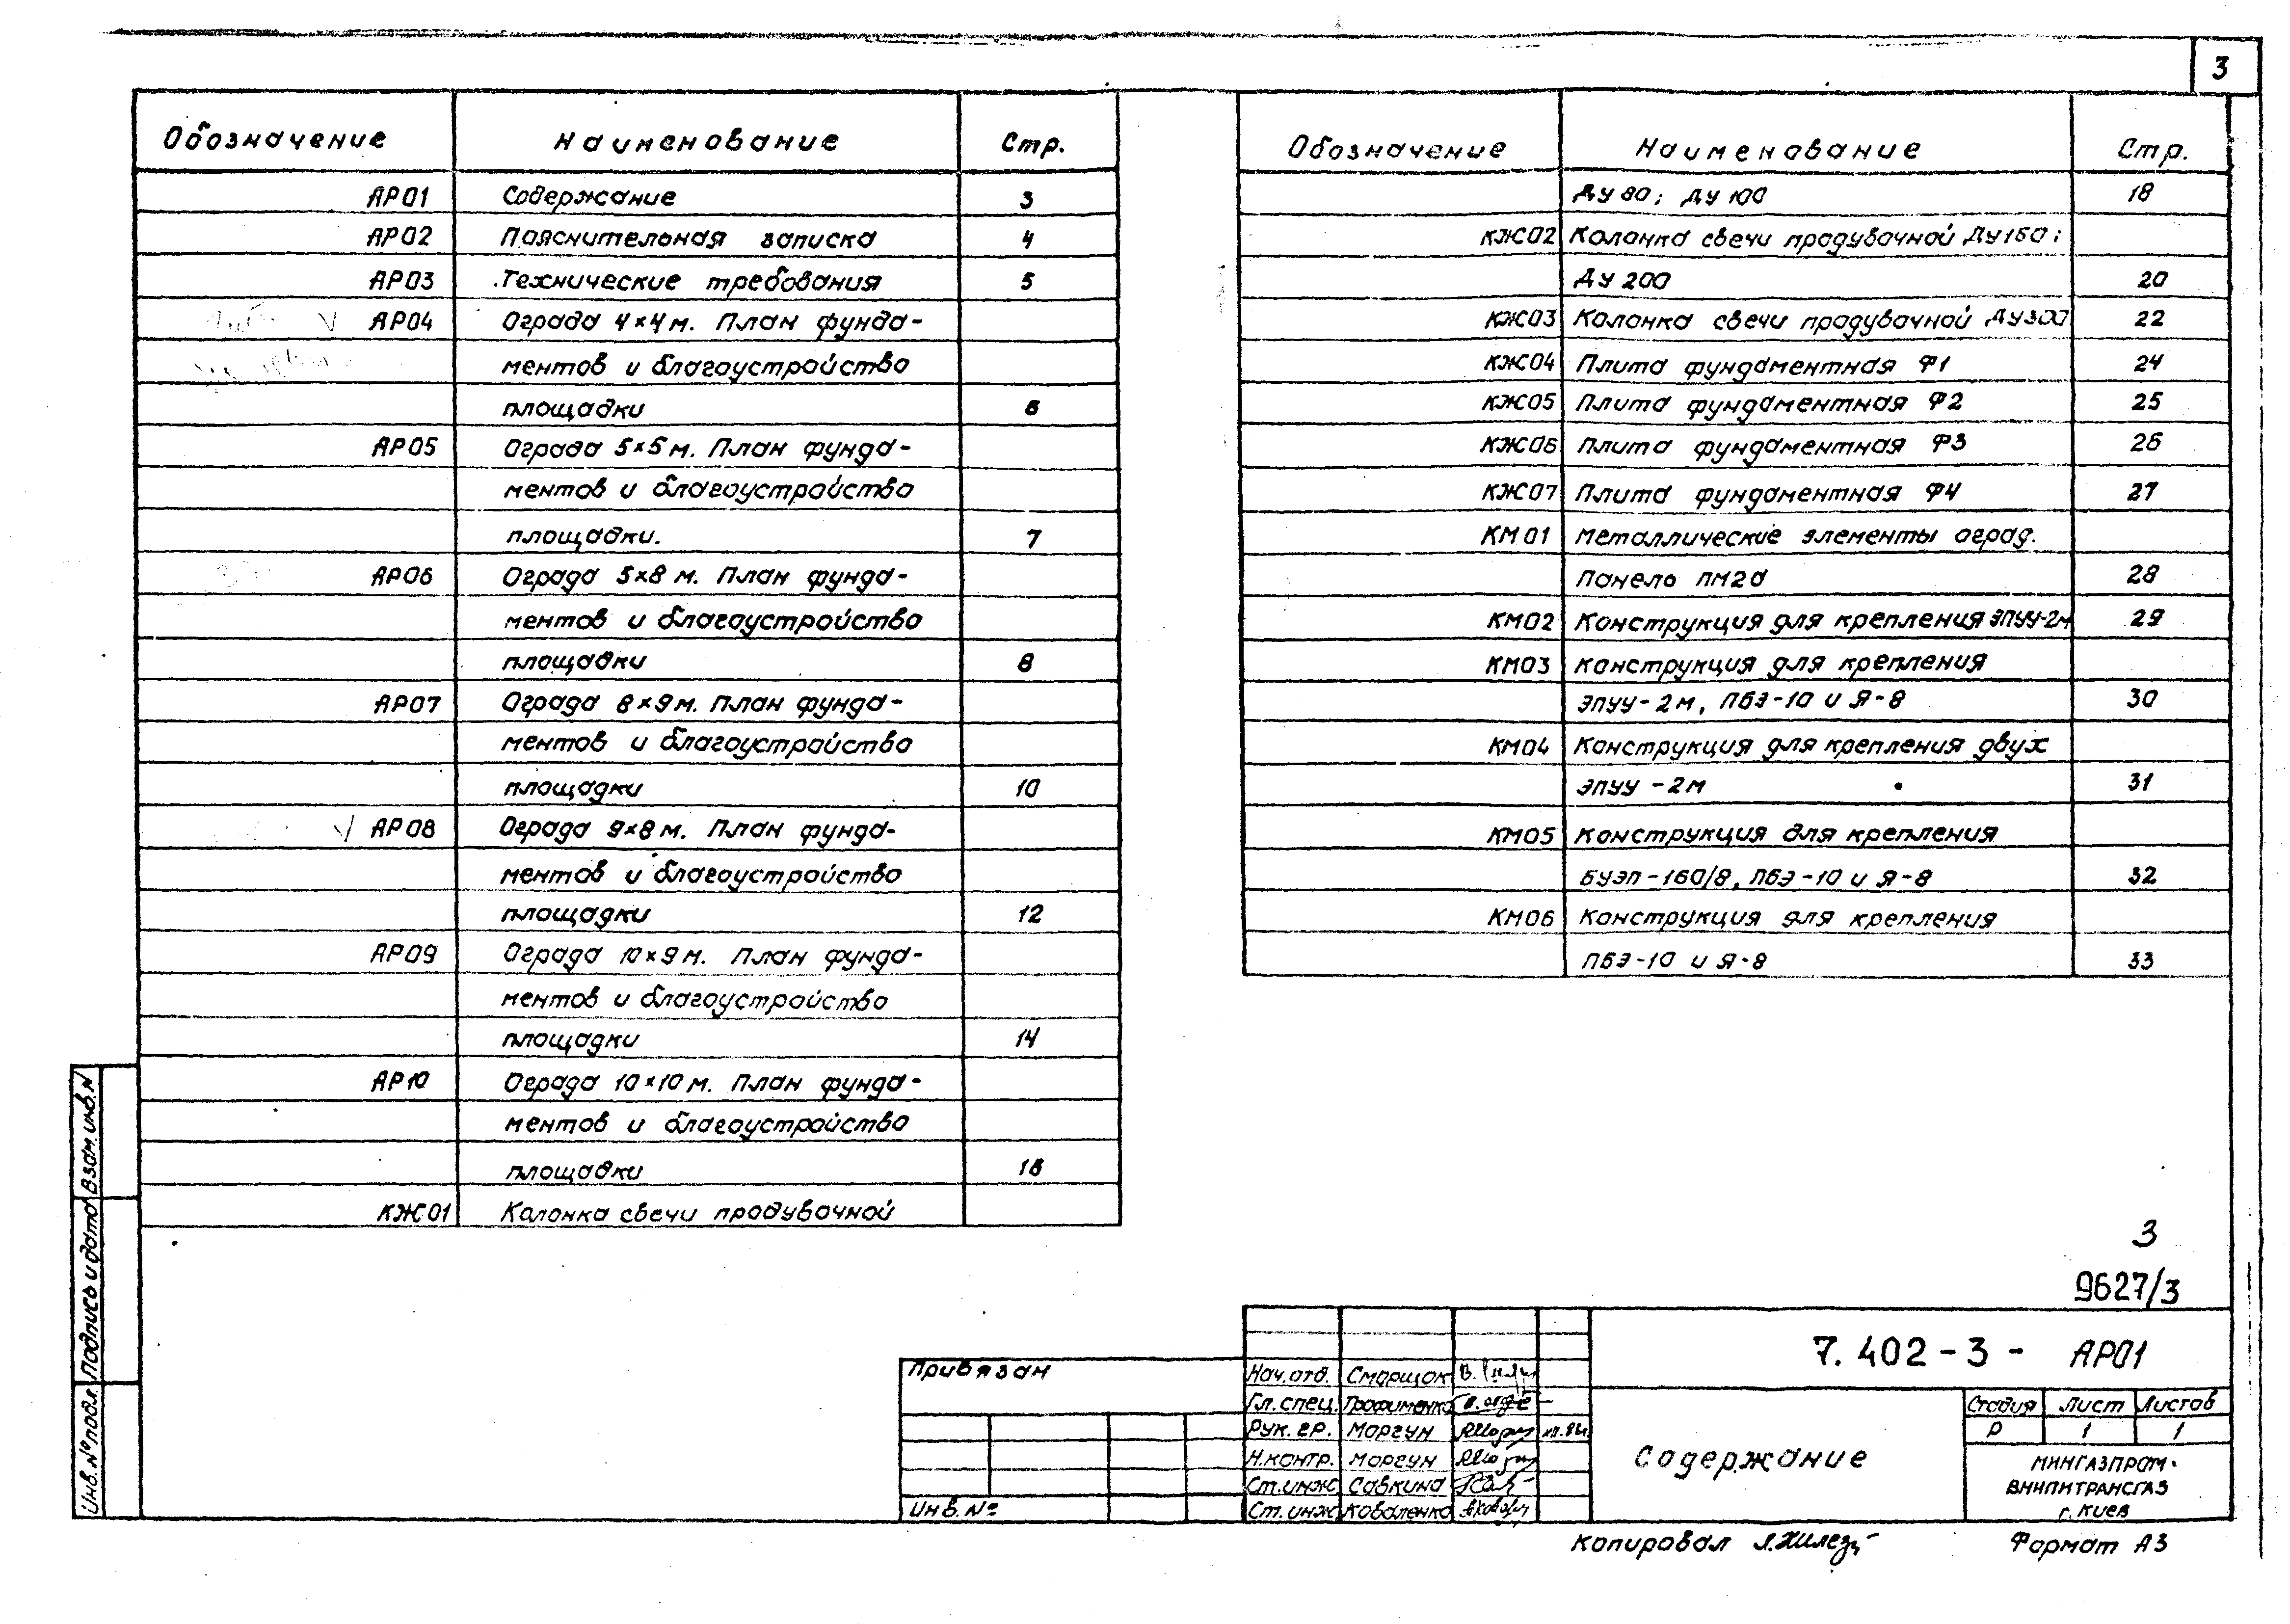 3
Обозначение Наименование Стр.
АР01 Содержание 3
АР02 Пояснительная записка 4
АР03 Технические требования 5
АР04 Ограда 4×4м. План фунда-
ментов и благоустройство
площадки 6
АР05 Ограда 5×5м. План фунда-
ментов и благоустройство
площадки. 7
АР06 Ограда 5×8м. План фунда-
ментов и благоустройство
площадки 8
АР07 Ограда 8×9м. План фунда-
ментов и благоустройство
площадки 10
АР08 Ограда 9×8м. План фунда-
ментов и благоустройство
площадки 12
АР09 Ограда 10×9м. План фунда-
ментов и благоустройство
площадки 14
АР10 Ограда 10×10м. План фунда-
ментов и благоустройство
площадки 16
КЖ01 Колонка свечи продувочной
Обозначение Наименование Стр.
ДУ 80; ДУ 100 18
КЖ02 Колонка свечи продувочной ДУ150;
ДУ 200 20
КЖ03 Колонка свечи продувочной ДУ300 22
КЖ04 Плита фундаментная Ф1 24
КЖ05 Плита фундаментная Ф2 25
КЖ06 Плита фундаментная Ф3 26
КЖ07 Плита фундаментная Ф4 27
КМ01 Металлические элементы оград.
Панель ПМ2а 28
КМ02 Конструкция для крепления ЭПУУ-2м 29
КМ03 Конструкция для крепления
ЭПУУ-2м, ПБЭ-10 и Я-8 30
КМ04 Конструкция для крепления двух
ЭПУУ-2м 31
КМ05 Конструкция для крепления
БУЭП-160/8, ПБЭ-10 и Я-8 32
КМ06 Конструкция для крепления
ПБЭ-10 и Я-8 33
3
9627/3
Взам. инв. №
Подпись и дата
Инв. № подл.
Привязан
Инв. №
Нач. отд. Сморщок
Гл. спец. Трофименко
Рук. гр. Моргун
Н.контр. Моргун
Ст.инж Савкина
Ст.инж Коваленко
7.402-3- АР01
Содержание
Стадия Лист Листов
Р 1 1
МИНГАЗПРОМ
ВНИПИТРАНСГАЗ
г. Киев
Копировал
Формат А3